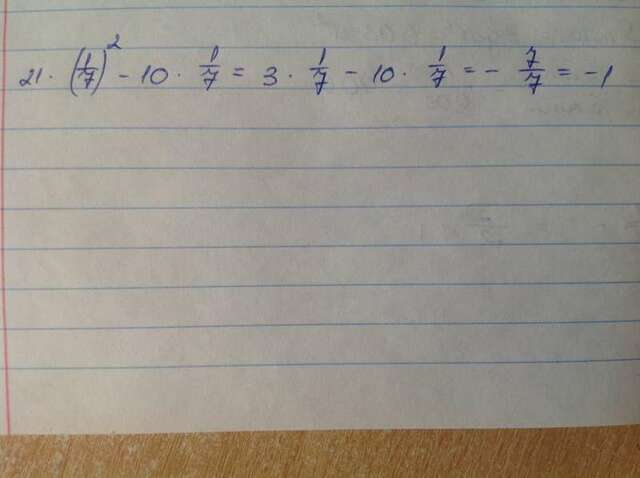 21 · (1/7)² - 10 · 1/7 = 3 · 1/7 - 10 · 1/7 = - 7/7 = -1